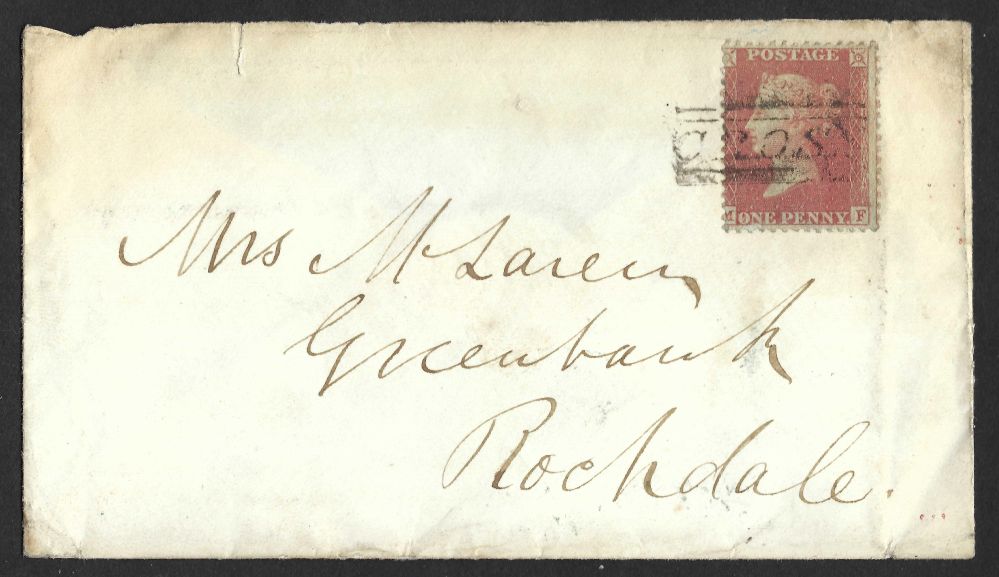 POSTAGE
ONE PENNY F
Mrs McLaren
Greenbank
Rochdale.